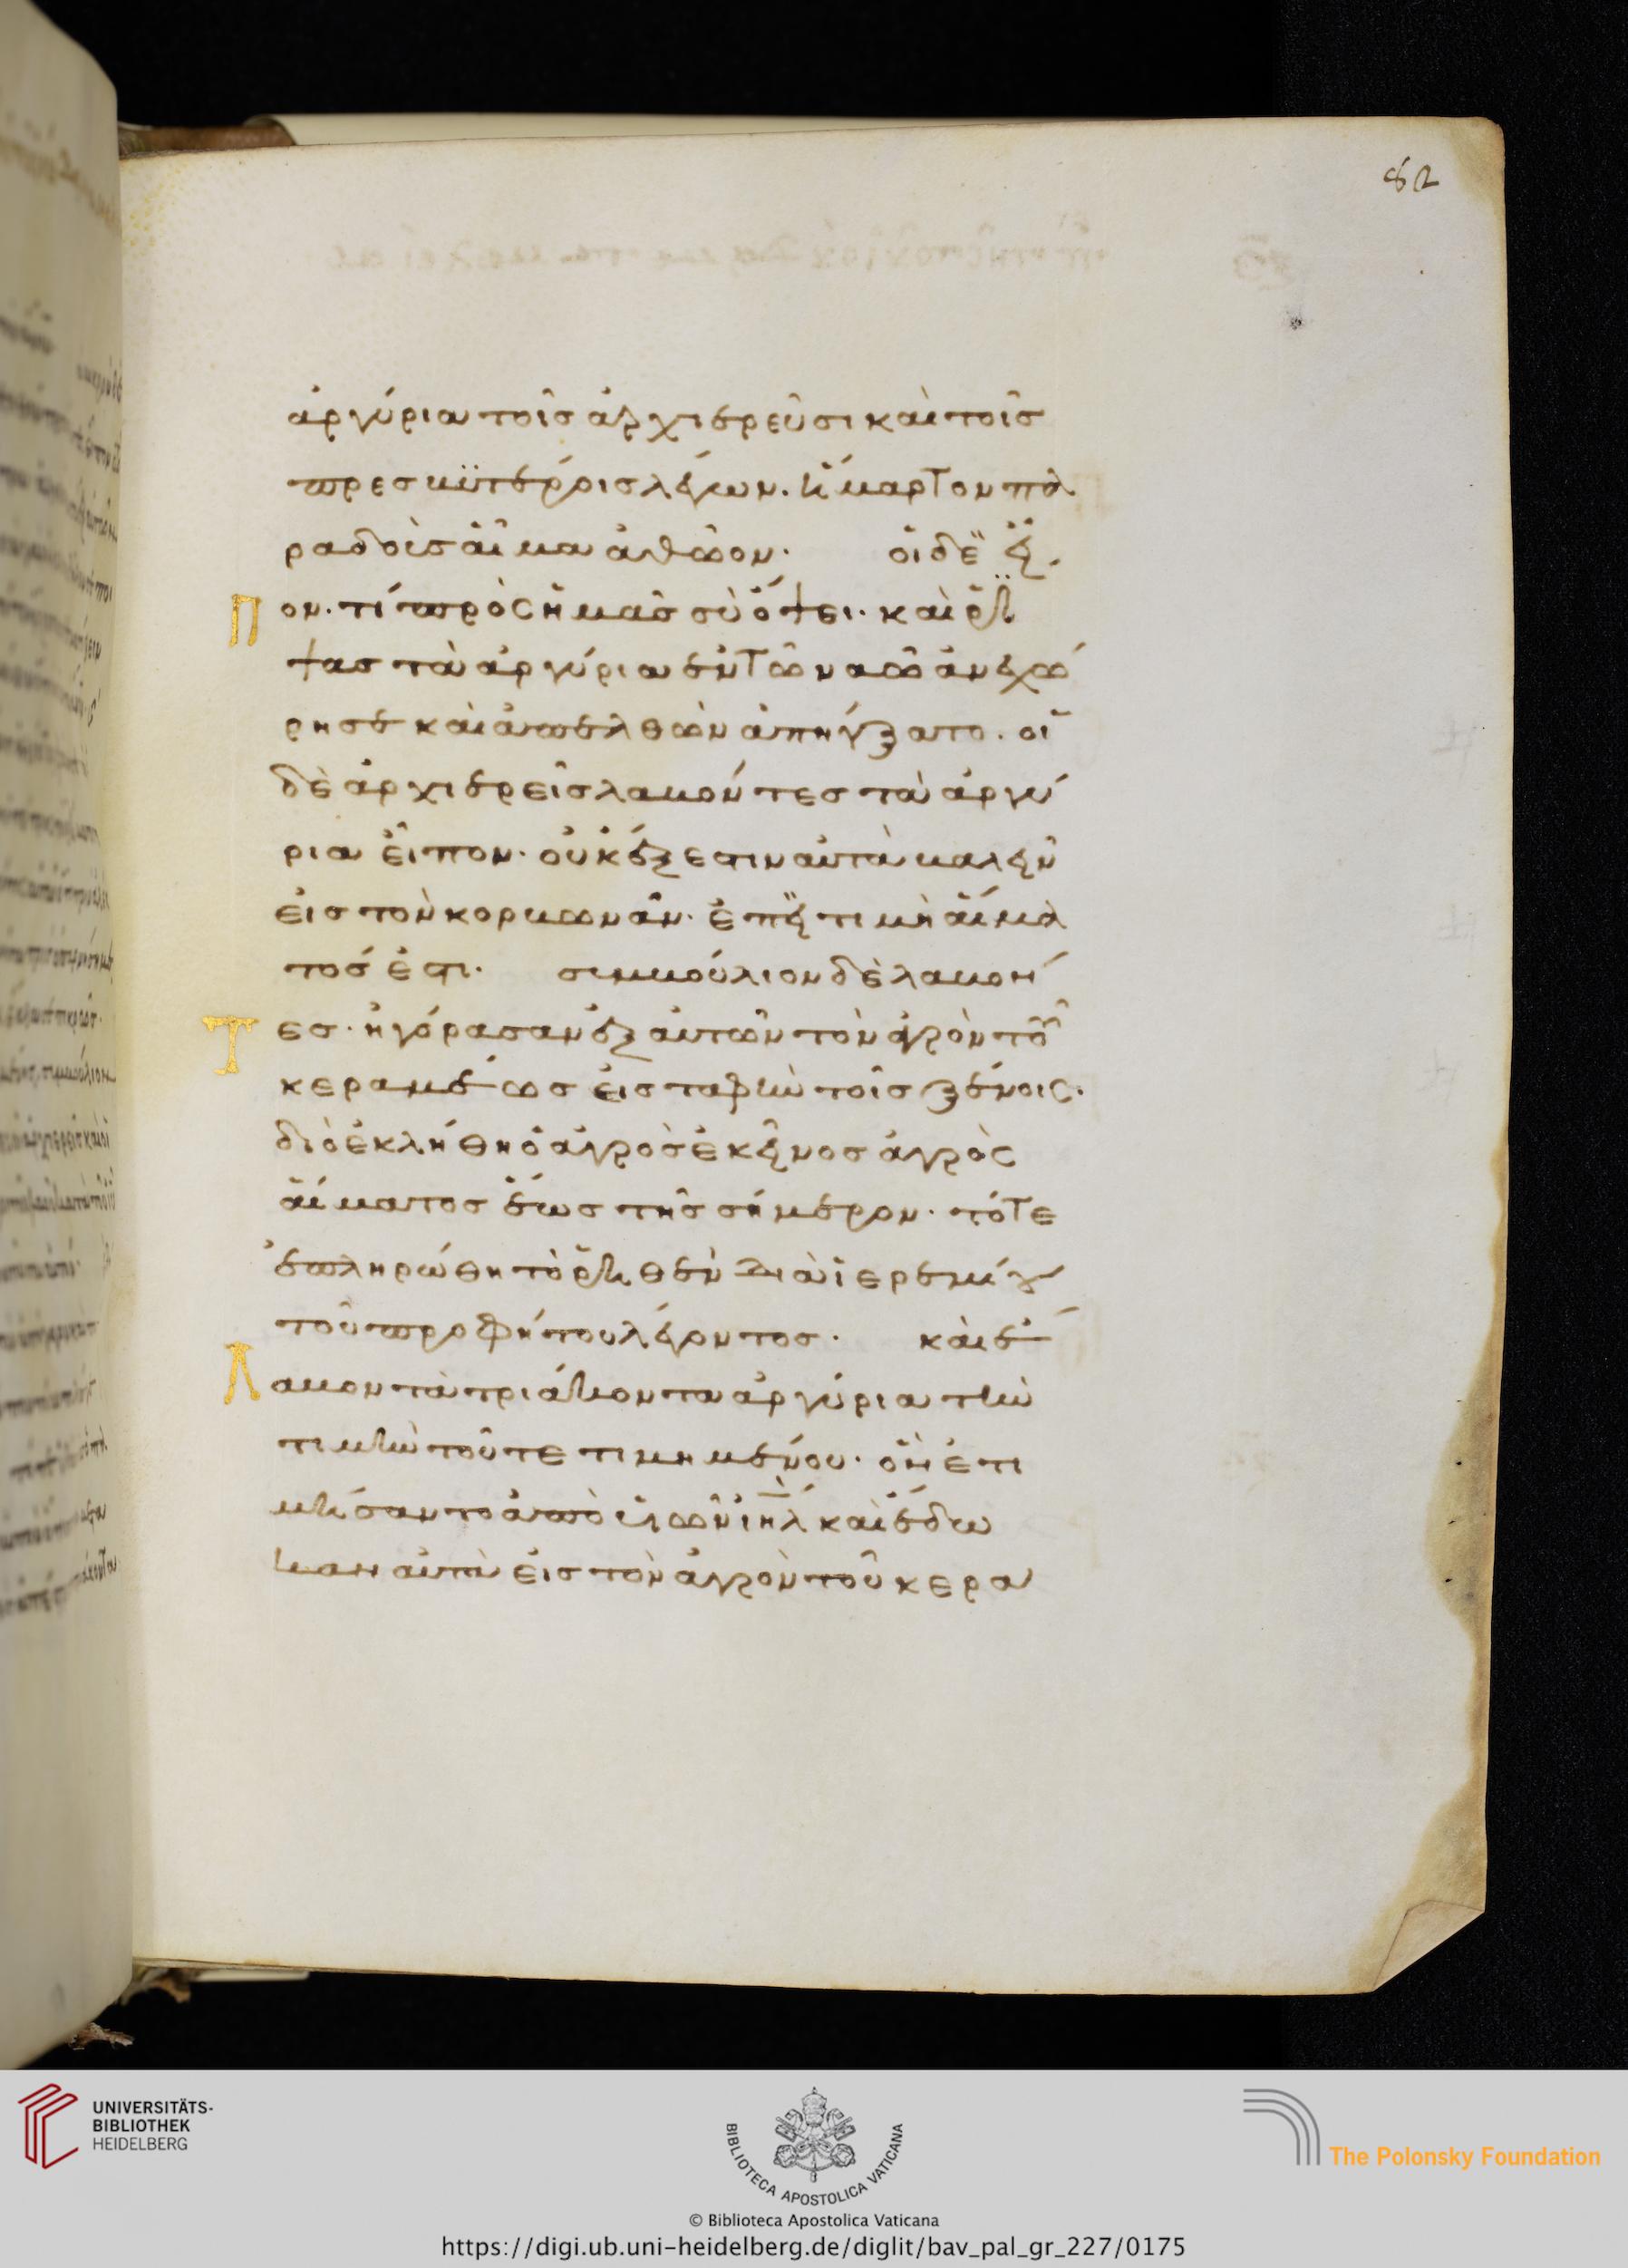 82
ἀργύρια τοῖς ἀρχιερεῦσι καὶ τοῖς
πρεσβϋτέροις λέγων. ἥμαρτον πα
ραδοὺς αἷμα ἀθῶον. οἱ δὲ εἶ
Πον. τί πρὸς ἡμᾶς σὺ ὄψει. καὶ ῥί
ψας τὰ ἀργύρια ἐν τῶ ναῶ ἀνεχώ
ρησε καὶ ἀπελθὼν ἀπήγξατο. οἱ
δὲ ἀρχιερεῖς λαβόντες τὰ ἀργύ
ρια εἶπον. οὐκ ἔξεστιν αὐτὰ βαλεῖν
εἰς τὸν κορβωνᾶν. ἐπεὶ τιμὴ αἵμα
τός ἐστι. συμβούλιον δὲ λαβόν
Τες. ἠγόρασαν ἐξ αὐτῶν τὸν ἀγρὸν τοῦ
κεραμέως εἰς ταφὴν τοῖς ξένοις.
διὸ ἐκλήθη ὁ ἀγρὸς ἐκεῖνος ἀγρὸς
αἵματος ἕως τῆς σήμερον. τότε
ἐπληρώθη τὸ ῥηθὲν διὰ ἱερεμίου
τοῦ προφήτου λέγοντος. καὶ ἔ
Λαβον τὰ τριάκοντα ἀργύρια τὴν
τιμὴν τοῦ τετιμημένου. ὃν ἐτι
μήσαντο ἀπὸ υἱῶν ιηλ καὶ ἔδω
καν αὐτὰ εἰς τὸν ἀγρὸν τοῦ κερα
UNIVERSITÄTS-
BIBLIOTHEK
HEIDELBERG
BIBLIOTECA APOSTOLICA VATICANA
The Polonsky Foundation
© Biblioteca Apostolica Vaticana
https://digi.ub.uni-heidelberg.de/diglit/bav_pal_gr_227/0175